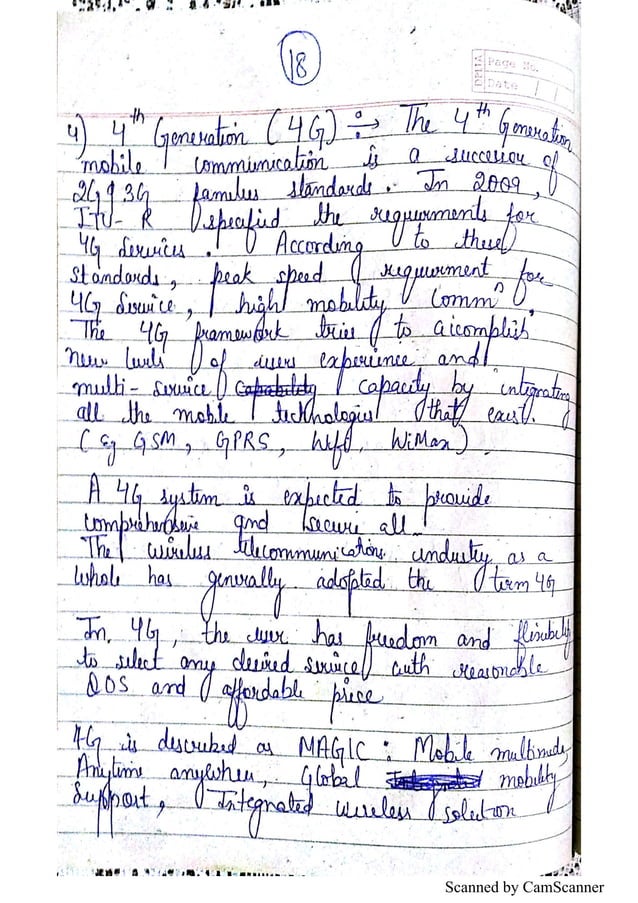 18
Page No.
Date
4) 4th Generation (4G) ÷→ The 4th Generation
mobile communication is a successor of
2G & 3G families standards. In 2009,
ITU-R specified the requirements for
4G Services. According to these
standards, peak speed requirement for
4G Service, high mobility Commn.
The 4G framework tries to accomplish
new levels of users experience and
multi-service Capability capacity by integrating
all the mobile technologies that exist.
(Eg GSM, GPRS, Wifi, WiMax)
A 4G system is expected to provide
comprehensive and secure all-
The wireless telecommunications industry as a
whole has generally adopted the term 4G
In 4G, the user has freedom and flexibility
to select any desired service with reasonable
QOS and affordable price
4G is described as MAGIC: Mobile multimedia,
Anytime anywhere, Global mobility
Support, Integrated wireless solution
Scanned by CamScanner